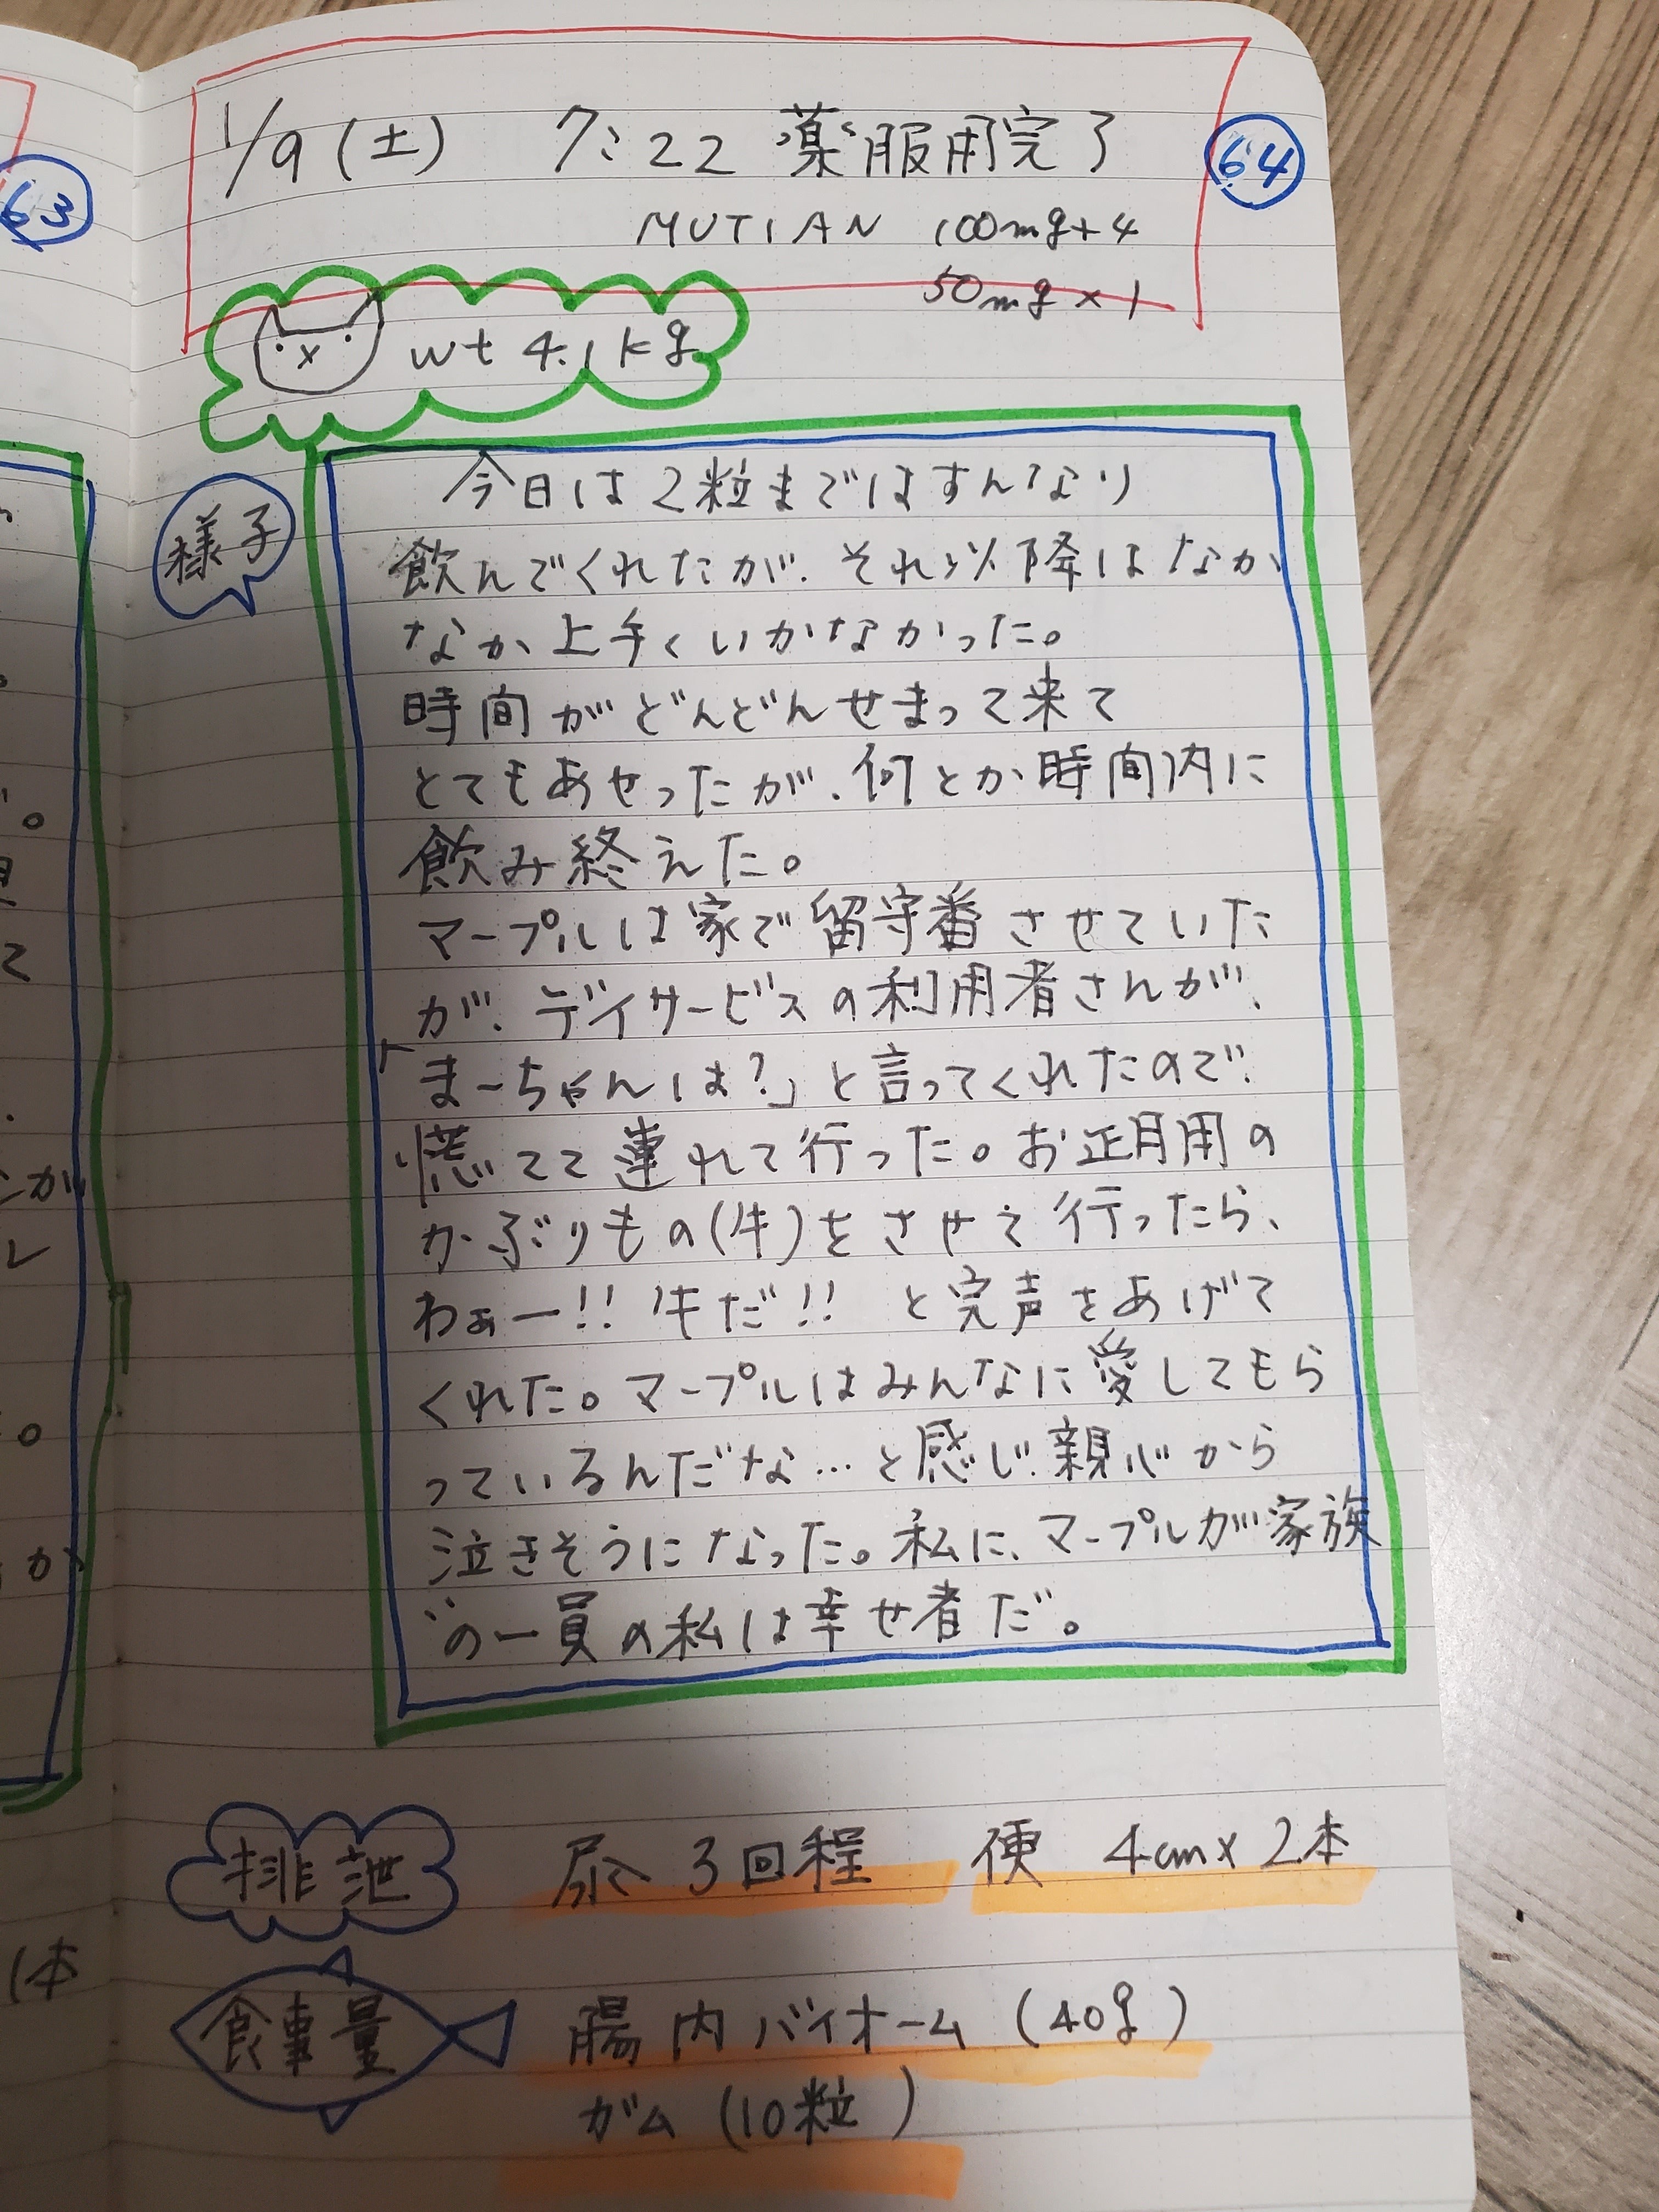 63
1/9(土) 7:22 薬服用完了
64
MUTIAN 100mg+4
50mg×1
wt 4.1kg
様子
今日は2粒まではすんなり
飲んでくれたが、それ以降はなか
なか上手くいかなかった。
時間がどんどんせまって来て
とてもあせったが、何とか時間内に
飲み終えた。
マープルは家で留守番させていた
が、デイサービスの利用者さんが、
「まーちゃんは?」と言ってくれたので、
慌てて連れて行った。お正月用の
かぶりもの(牛)をさせて行ったら、
わぁー!!牛だ!! と声をあげて
くれた。マープルはみんなに愛してもら
っているんだな…と感じ、親心から
泣きそうになった。私に、マープルが家族
の一員の私は幸せ者だ。
排泄 尿 3回程 便 4cm×2本
1本
食事量 腸内バイオーム(40g)
ガム(10粒)